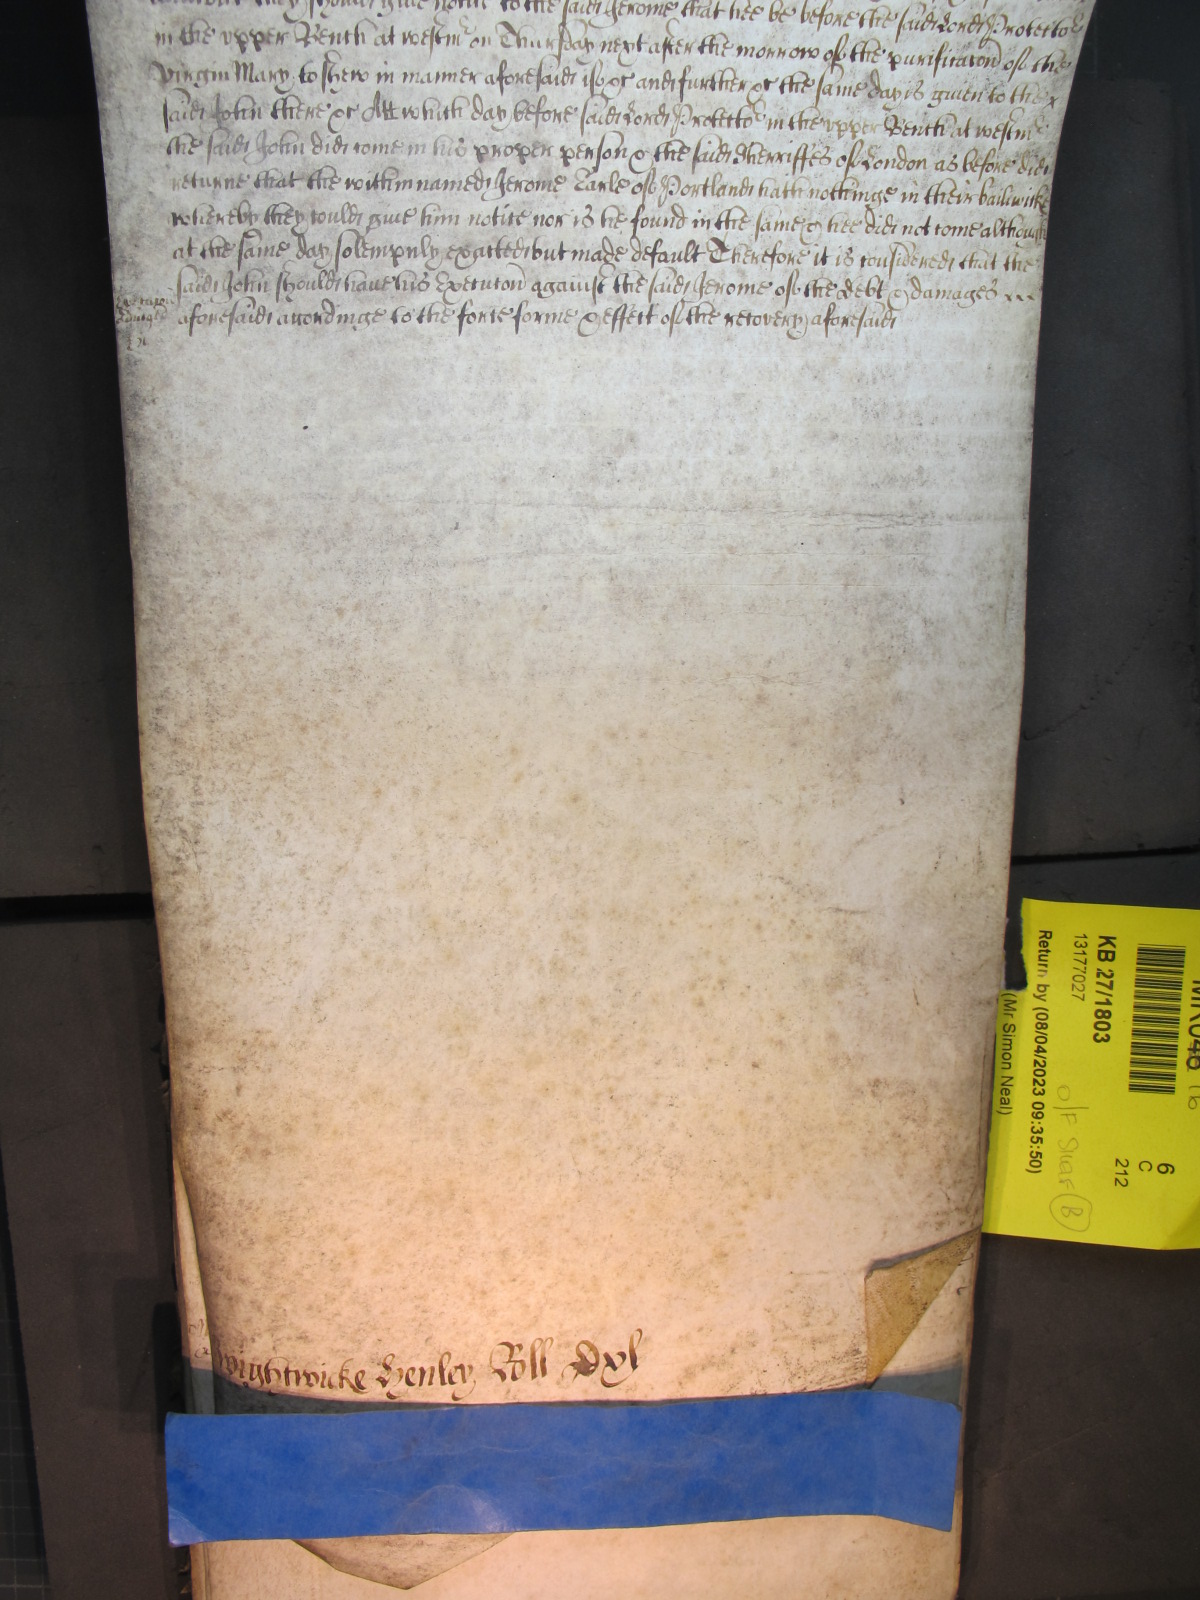 they should give notice to the said Jerome that hee be before the said Lord Protector
in the vpper Bench at westmr on Thursday next after the morrow of the purificacon of the
virgin Mary, to shew in manner aforesaid if &c and further &c the same day is given to the
said John there &c Att which day before said Lord Protector in the vpper Bench at westmr
the said John did come in his proper person & the said Sherriffes of London as before did
returne that the within named Jerome Earle of Portland hath nothinge in their bailiwicke
whereby they could give him notice nor is he found in the same & hee did not come although
at the same day solempnly exacted but made default Therefore it is considered that the
said John should have his Execucon against the said Jerome of the debt & damages ...
aforesaid accordinge to the force forme & effect of the recovery aforesaid
wightwicke Henley Roll Dxl
KB 27/1803
13177027
Return by (08/04/2023 09:35:50)
(Mr Simon Neal)
6
C
212
O/F Shelf B